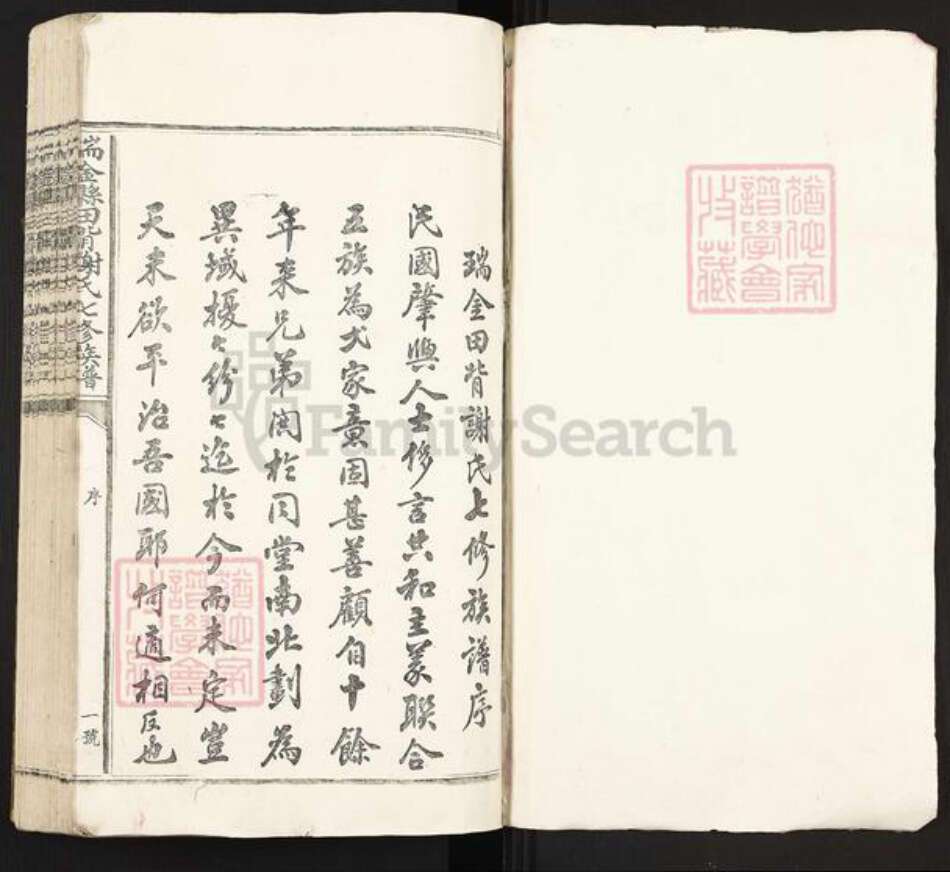 瑞金田背謝氏七修族譜序
民國肇興人士侈言共和主義聯合
五族為大家意固甚善顧自十餘
年來兄弟鬩於同堂南北劃為
異域擾〻紛〻迄於今而未定豈
天未欲平治吾國耶何適相反也
瑞金縣田背謝氏七修族譜
序
一號
FamilySearch
譜學會
收藏